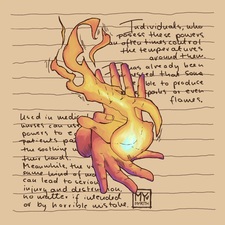 Individuals, who
posess these powers
can often times control
the temperatures
around them.
has already been
that some
able to produce
or even
flames.
Used in medi
can use
powers to e
pat ents pai
the soothing w
their hand.
Meanwhile, the
same kind of
can lead to serious
injury and destruction,
no matter if intended
or by horrible mistake.